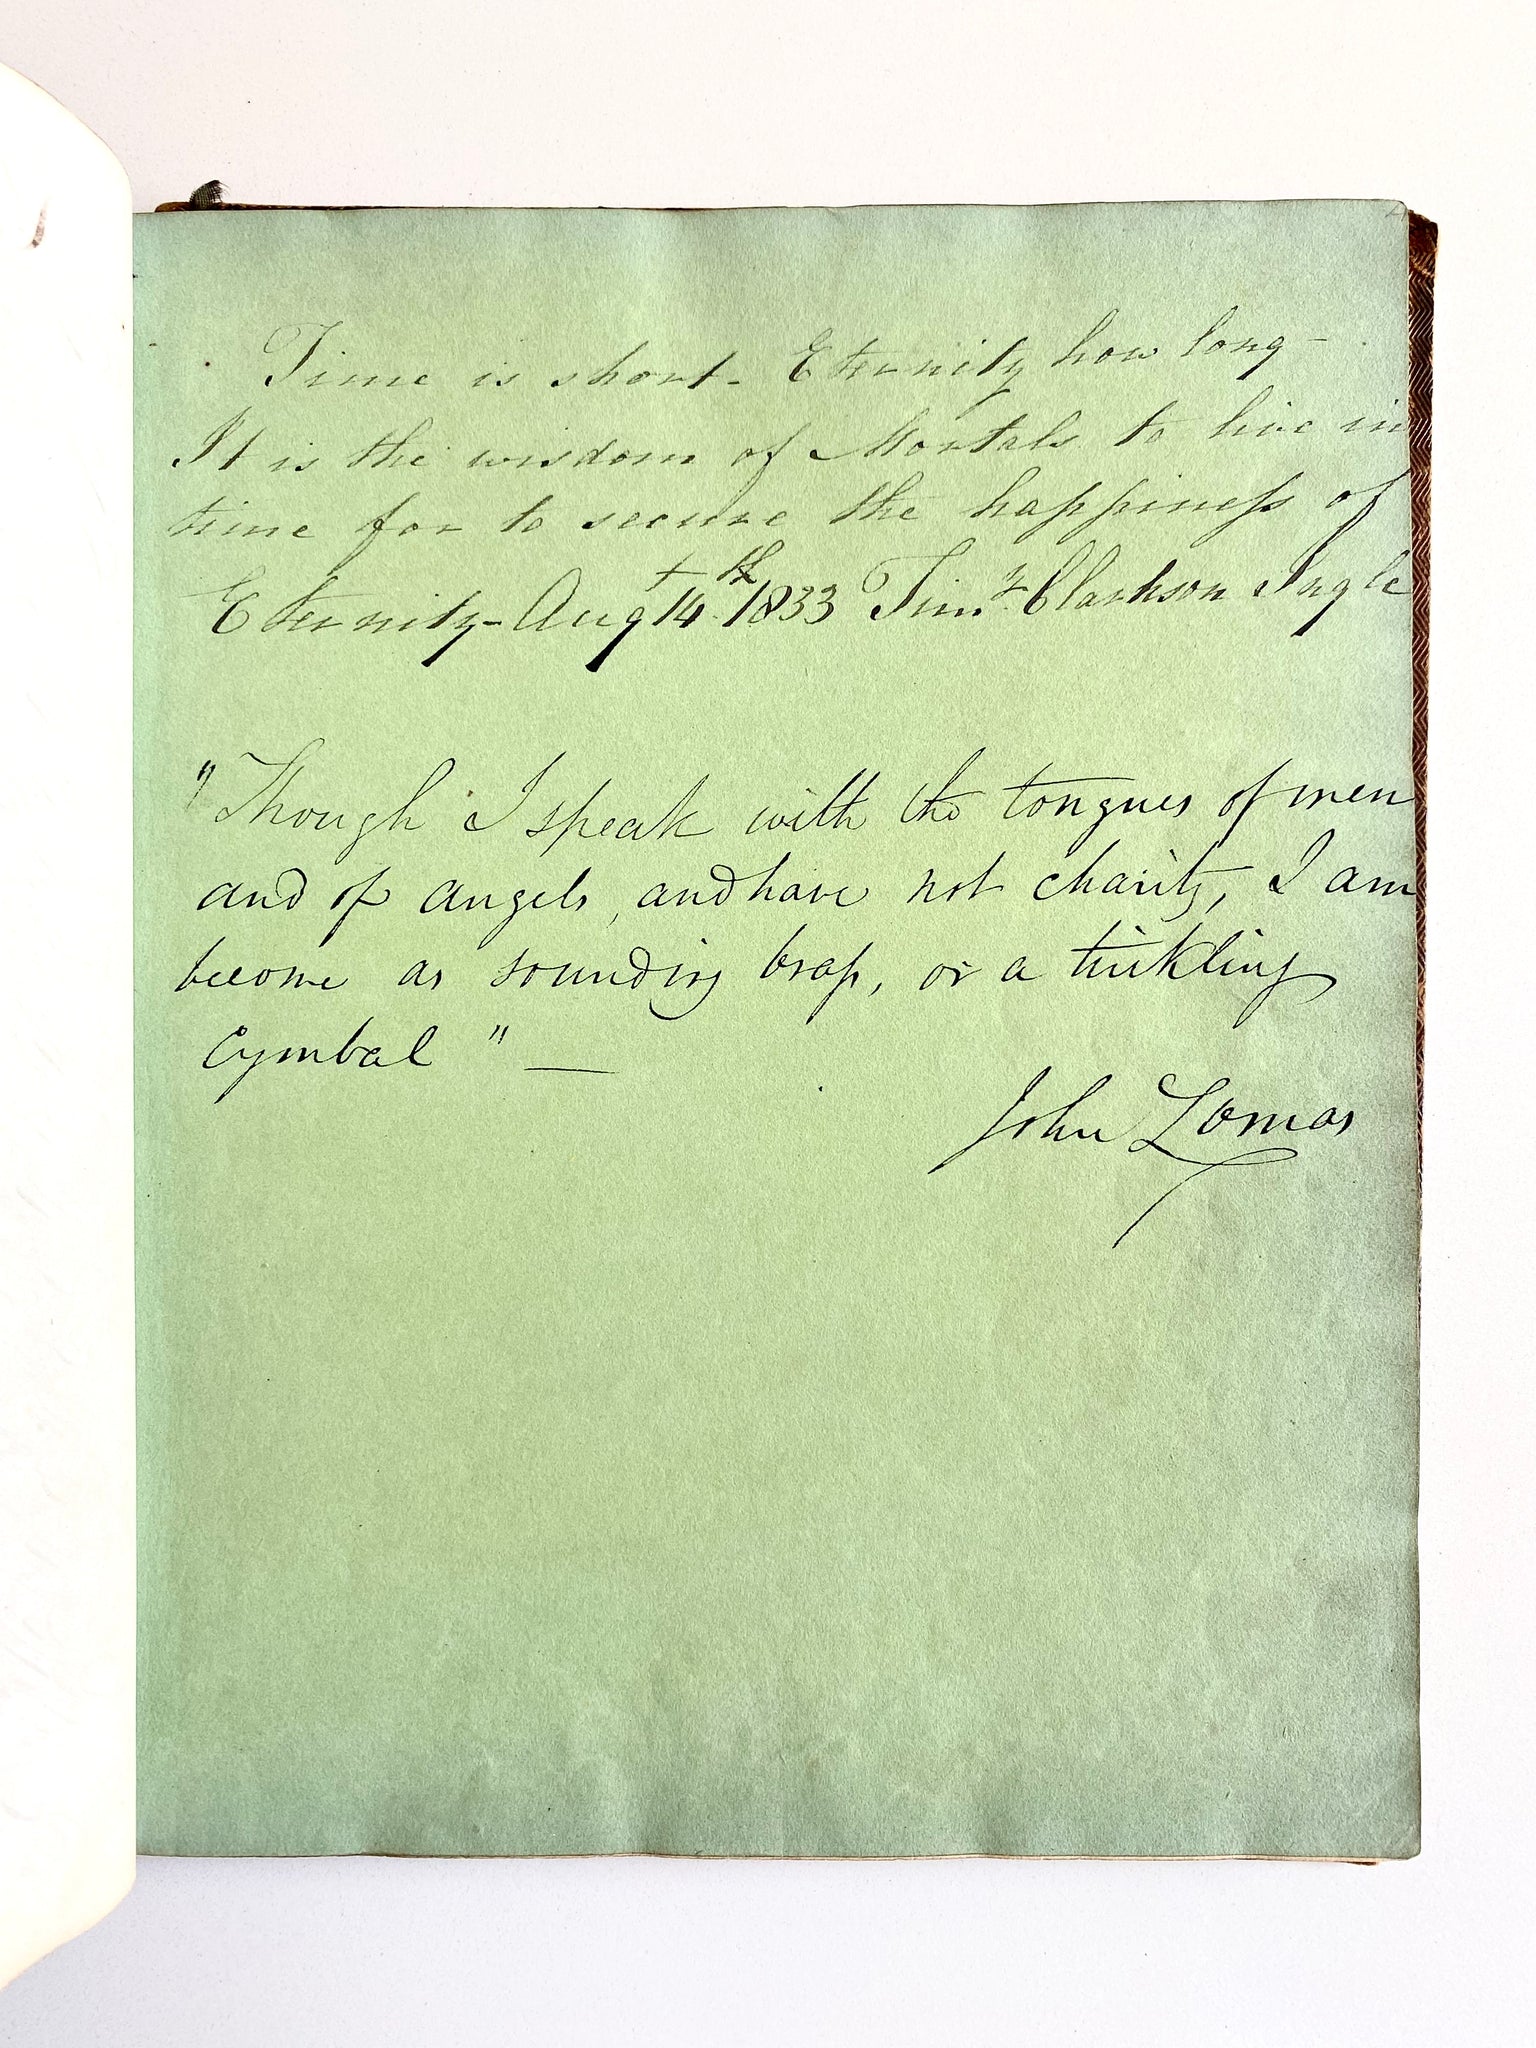 Time is short - Eternity how long -
It is the wisdom of Mortals to live in
time for to secure the happiness of
Eternity - Augt 14th 1833 Timy. Clarkson Ingle
"Though I speak with the tongues of men
and of angels, and have not charity, I am
become as sounding brass, or a tinkling
Cymbal" —
John Lomas